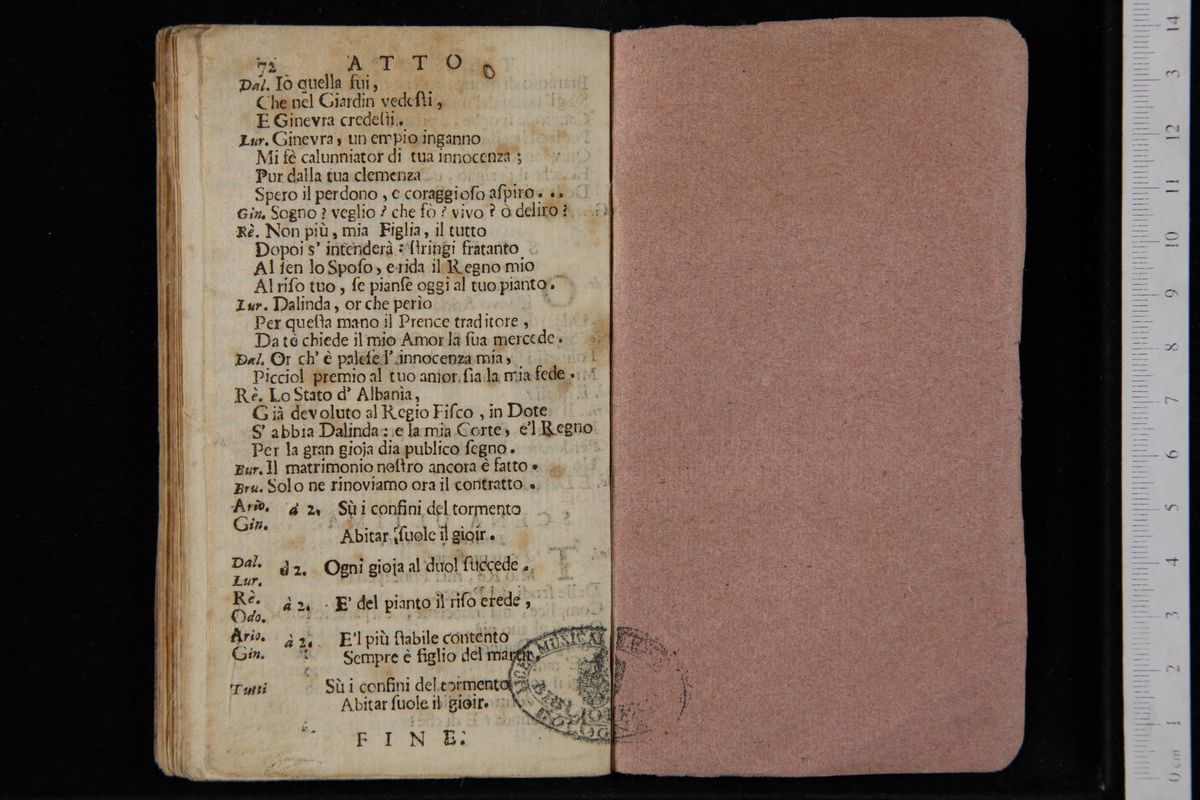 72 ATTO
Dal. Iò quella fui,
Che nel Giardin vedeſti,
E Ginevra credeſti.
Lur. Ginevra, un empio inganno
Mi fè calunniator di tua innocenza;
Pur dalla tua clemenza
Spero il perdono, e coraggioſo aſpiro...
Gin. Sogno? veglio? che fò? vivo? ò deliro?
Rè. Non più, mia Figlia, il tutto
Dopoi s' intenderà: ſtringi fratanto
Al ſen lo Spoſo, e rida il Regno mio
Al riſo tuo, ſe pianſe oggi al tuo pianto.
Lur. Dalinda, or che perìo
Per queſta mano il Prence traditore,
Da tè chiede il mio Amor la ſua mercede.
Dal. Or ch' è paleſe l' innocenza mia,
Picciol premio al tuo amor ſia la mia fede.
Rè. Lo Stato d' Albania,
Già devoluto al Regio Fiſco, in Dote
S' abbia Dalinda: e la mia Corte, e'l Regno
Per la gran gioja dia publico ſegno.
Eur. Il matrimonio noſtro ancora è fatto.
Bru. Solo ne rinoviamo ora il contratto.
Ario. à 2. Sù i confini del tormento
Gin.
Abitar ſuole il gioir.
Dal.
à 2. Ogni gioja al duol ſuccede.
Lur.
Rè.
à 2. E' del pianto il riſo erede,
Odo.
Ario. à 2. E'l più ſtabile contento
Gin. Sempre è figlio del martir.
Tutti Sù i confini del tormento
Abitar ſuole il gioir.
FINE.
LICEO MUSICALE
BIBLIOTECA
BOLOGNA
0 cm 1 2 3 4 5 6 7 8 9 10 11 12 3 14